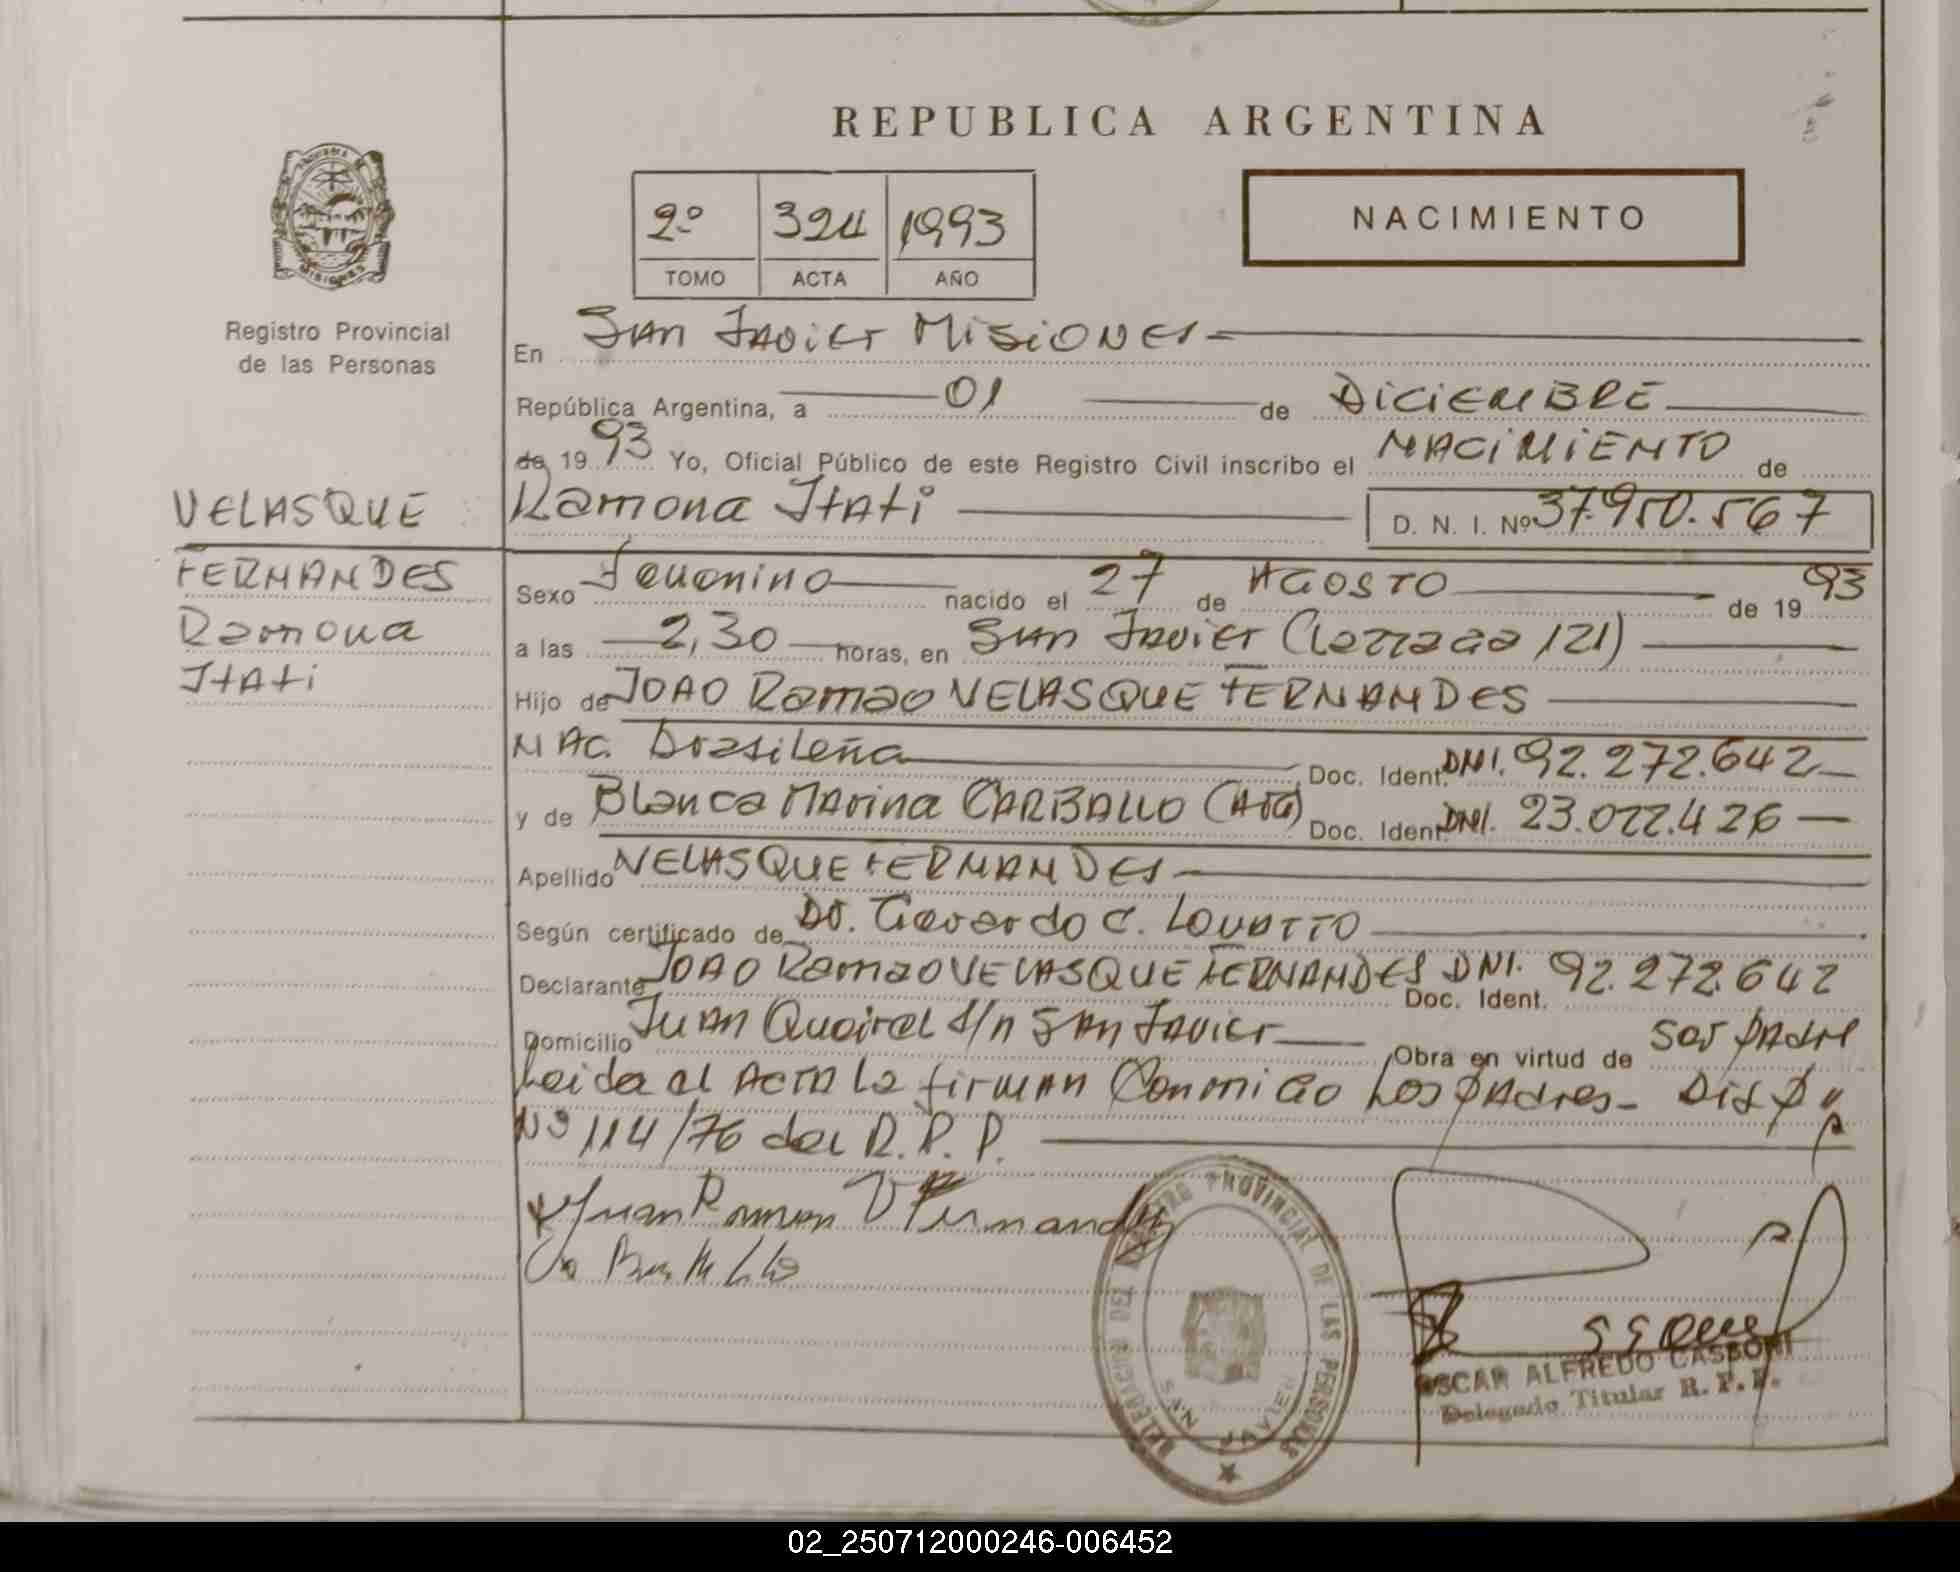 REPUBLICA ARGENTINA
2º 324 1993
TOMO ACTA AÑO
NACIMIENTO
MISIONES
Registro Provincial
de las Personas
VELASQUE
FERNANDES
Ramona
Itati
En San Javier Misiones
República Argentina, a 01 de DICIEMBRE
de 19 93 Yo, Oficial Público de este Registro Civil inscribo el NACIMIENTO de
Ramona Itati D. N. I. Nº 37.950.567
Sexo Femenino nacido el 27 de AGOSTO de 19 93
a las 2,30 horas, en San Javier (Larraga 121)
Hijo de JOAO Ramao VELASQUE FERNANDES
NAC. Brasileña Doc. Ident. DNI. 92.272.642
y de Blanca Marina CARBALLO (Arg) Doc. Ident. DNI. 23.022.426
Apellido VELASQUE FERNANDES
Según certificado de Dr. Gerardo C. LOVATTO
Declarante JOAO Ramao VELASQUE FERNANDES DNI. 92.272.642
Doc. Ident.
Domicilio Juan Queirel S/n San Javier Obra en virtud de ser padre
Leida el Acta la firman Conmigo Los padres. Disp.
Nº 114/76 del R.P.P.
Juan Ramon V Fernandez
DELEGACION DEL REGISTRO PROVINCIAL DE LAS PERSONAS
SAN JAVIER
OSCAR ALFREDO CASSONI
Delegado Titular R. P. P.
02_250712000246-006452